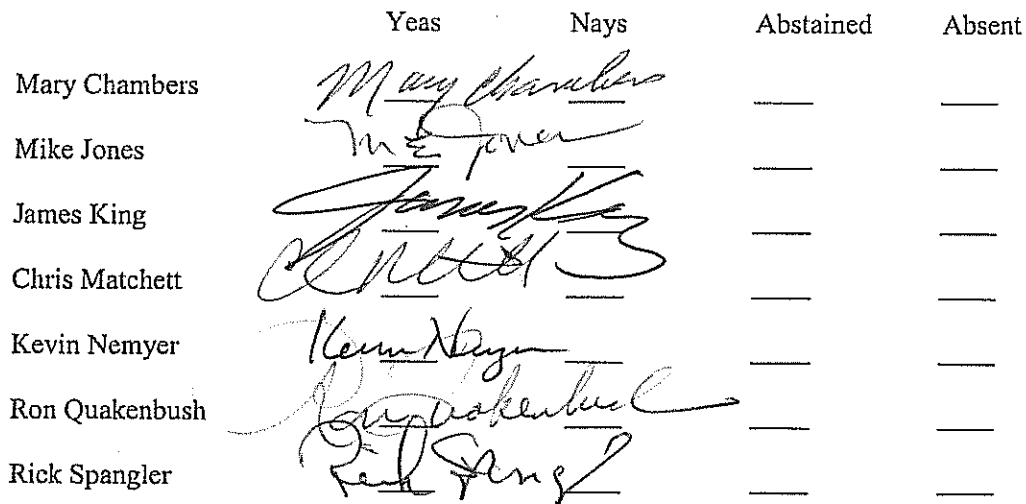 Yeas Nays Abstained Absent
Mary Chambers Mary Chambers
Mike Jones M E Jones
James King James King
Chris Matchett
Kevin Nemyer Kevin Nemyer
Ron Quakenbush Ron Quakenbush
Rick Spangler Rick